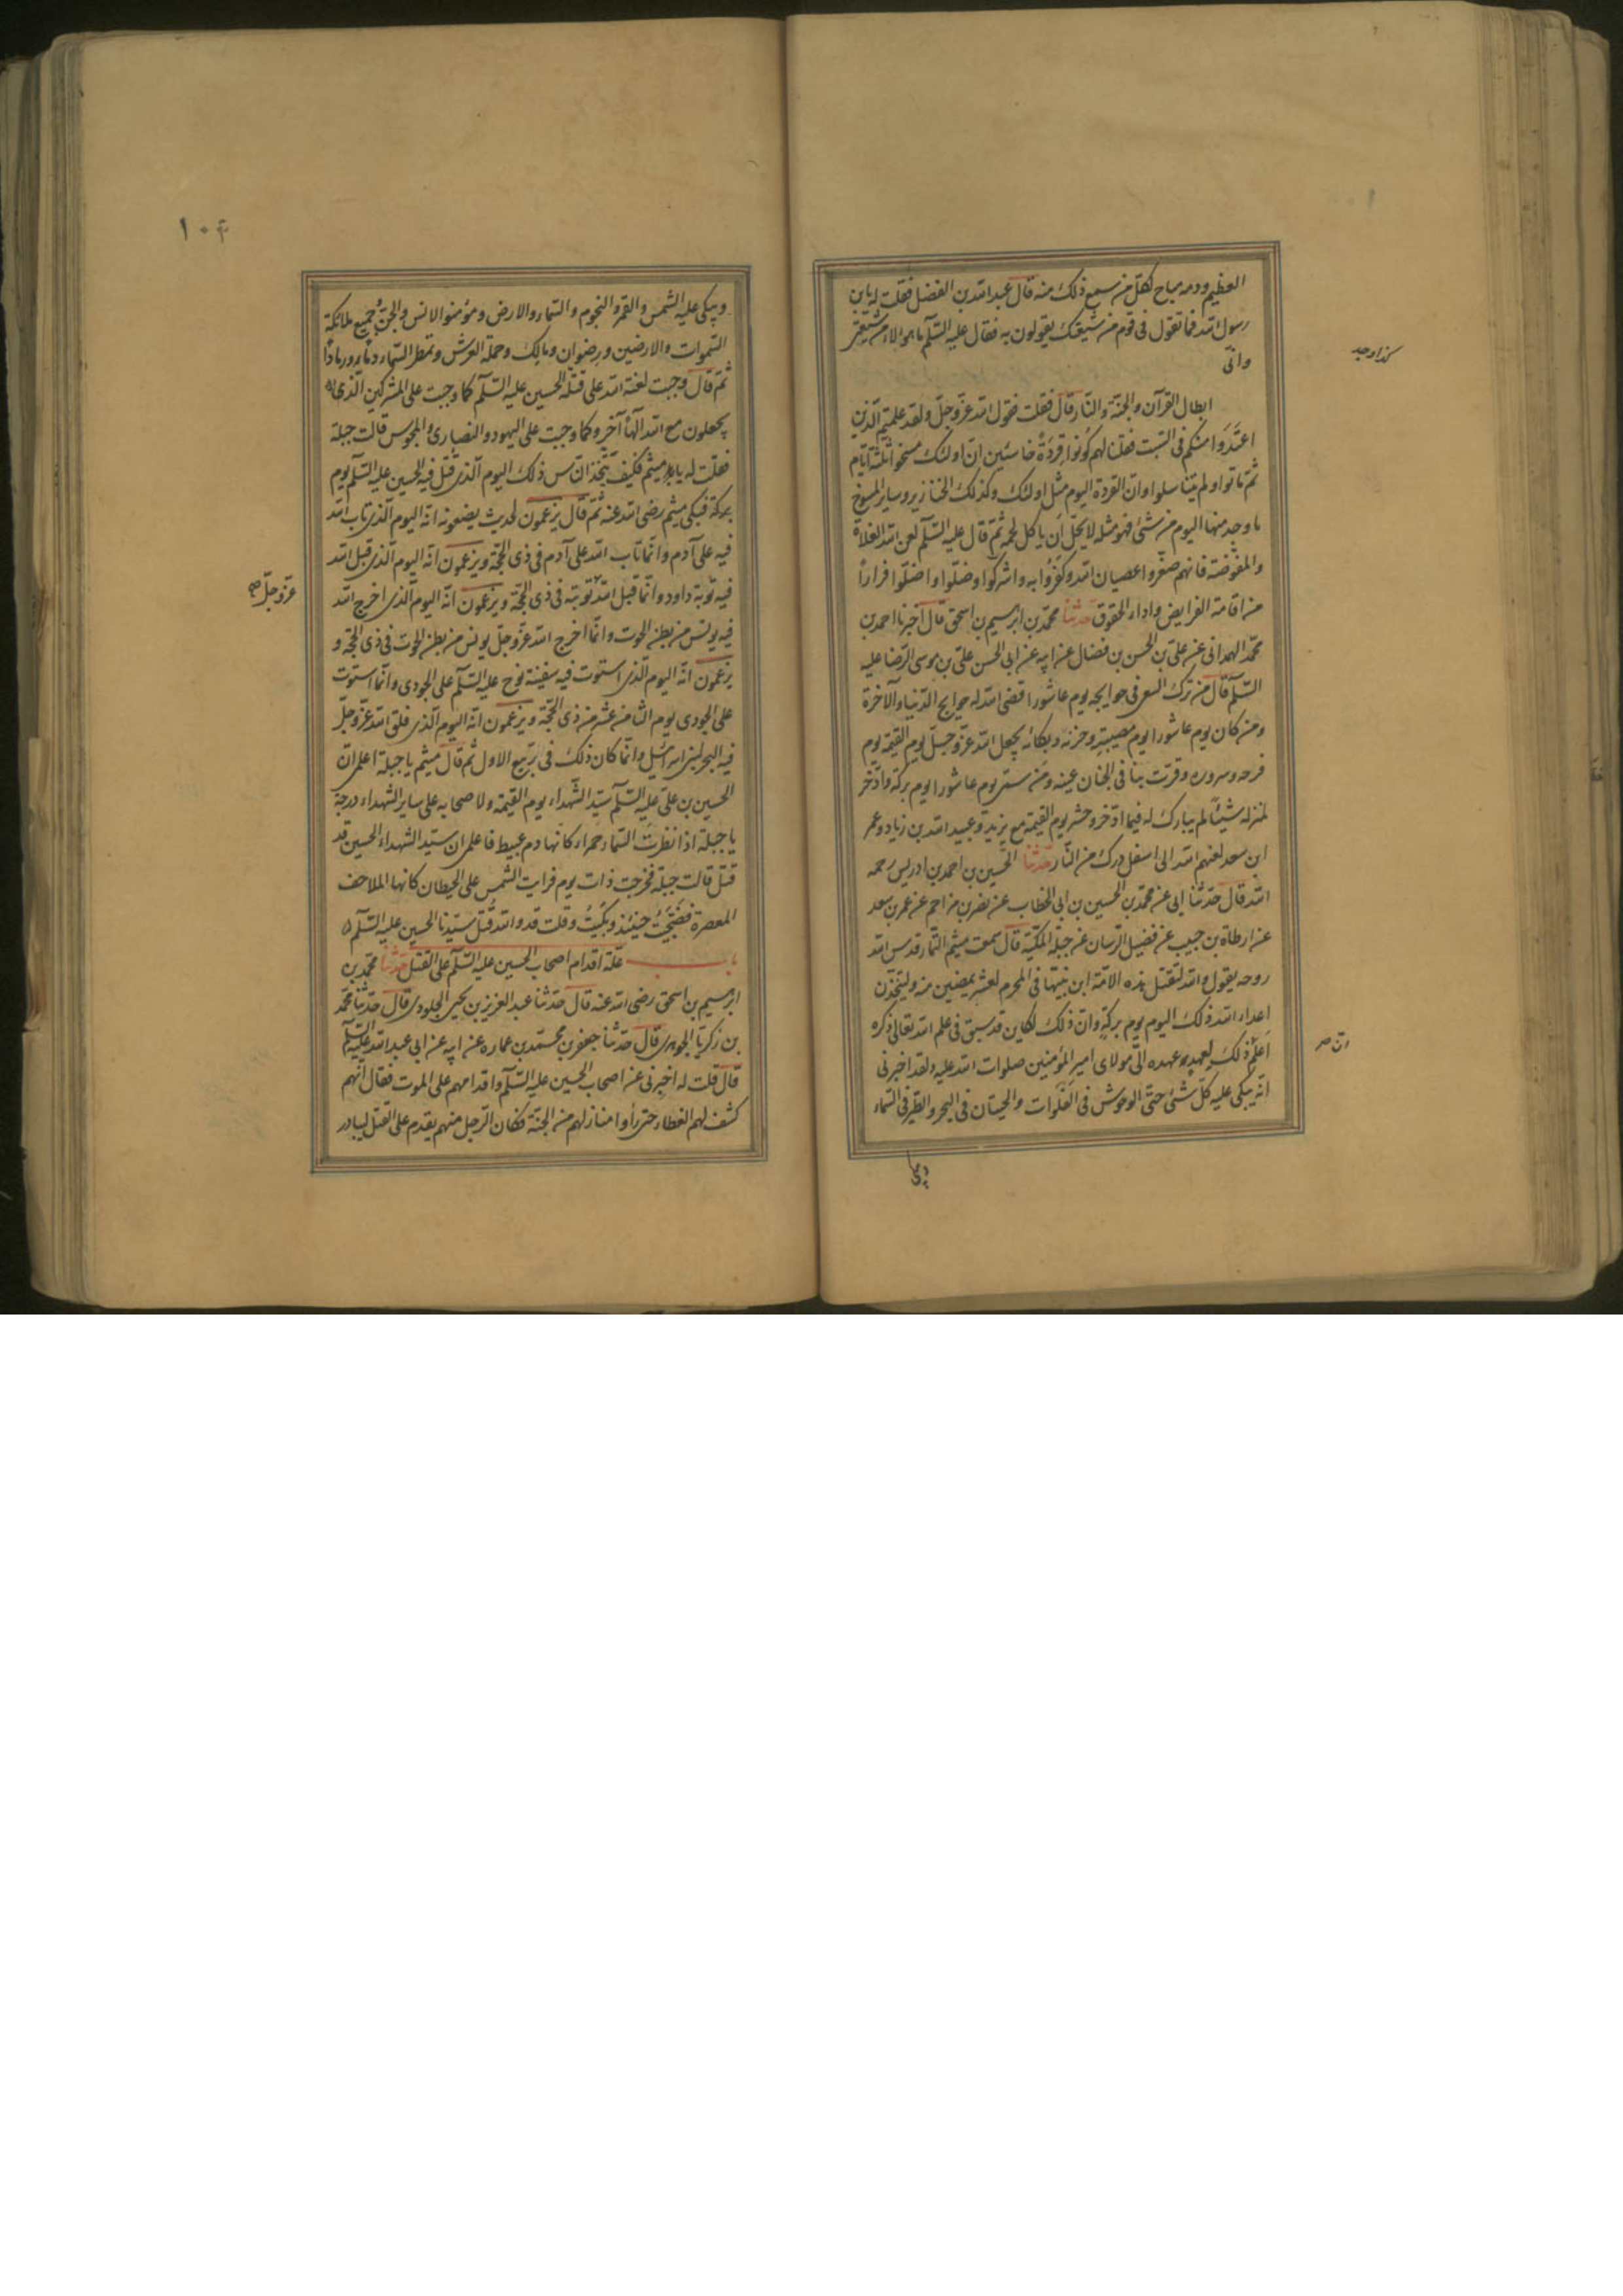 العظيم ودمه مباح لكل من سمع ذلك منه قال عبد الله بن الفضل فقلت له يابن
رسول الله فما تقول في قوم من شيعتك يقولون به فقال عليه السلم ما هولاء من شيعتي
كذا وجد
واني
ابطال القرآن والجنة والنار قال فقلت فقول الله عز وجل ولقد علمتم الذين
اعتَدَوا منكم في السبت فقلنا لهم كُونوا قِرَدَةً خاسئين ان اولئك مسخوا ثلثة ايام
ثم ماتوا ولم يتناسلوا وان القردة اليوم مثل اولئك وكذلك الخنازير وساير المسوخ
ما وجد منها اليوم من شئ فهو مثله لا يحل أن ياكل لحمه ثم قال عليه السلم لعن الله الغلاة
والمفوضة فانهم صغروا عصيان الله وكفروا به واشركوا وضلوا واضلوا فراراً
من اقامة الفرايض واداء الحقوق حدثنا محمد بن ابرهيم بن اسحق قال اخبرنا احمد بن
محمد الهمداني عن علي بن الحسن بن فضال عن ابيه عن ابي الحسن علي بن موسى الرضا عليه
السلم قال من ترك السعي في حوايجه يوم عاشورا قضى الله له حوايج الدنيا والآخرة
ومن كان يوم عاشورا يوم مصيبته وحزنه وبكائه يجعل الله عز وجل يوم القيمة يوم
فرحه وسروره وقرت بنا في الجنان عينه ومن سمى يوم عاشورا يوم بركة وادخر
لمنزله شيئاً لم يبارك له فيما ادخر وحشر يوم القيمة مع يزيد وعبيد الله بن زياد وعمر
ابن سعد لعنهم الله الى اسفل درك من النار حدثنا الحسين بن احمد بن ادريس رحمه
الله قال حدثنا ابي عن محمد بن الحسين بن ابي الخطاب عن نصر بن مزاحم عن عمر بن سعد
عن ارطاة بن حبيب عن فضيل الرسان عن جبلة المكية قال سمعت ميثم التمار قدس الله
روحه يقول والله لتقتل هذه الامة ابن نبيها في المحرم لعشر يمضين منه وليتخذن
اعداء الله ذلك اليوم يوم بركةٍ وان ذلك لكاين قد سبق في علم الله تعالى ذكره
اعلم ذلك لعهدٍ عهده الي مولاي امير المؤمنين صلوات الله عليه ولقد اخبرني
انه يبكي عليه كل شئ حتى الوحوش في الفلوات والحيتان في البحر والطير في السماء
ويبكي
١٠٣
ويبكي عليه الشمس والقمر والنجوم والسماء والارض ومؤمنوا الانس والجن وجميع ملائكة
السموات والارضين ورضوان ومالك وحملة العرش وتمطر السماء دماً ورماداً
ثم قال وجبت لعنة الله على قتلة الحسين عليه السلم كما وجبت على المشركين الذي
يجعلون مع الله آلهاً آخر وكما وجبت على اليهود والنصارى والمجوس قالت جبلة
فقلت له يا ميثم فكيف يتخذ الناس ذلك اليوم الذي قتل فيه الحسين عليه السلم يوم
بركة فبكى ميثم رضي الله عنه ثم قال يزعمون لحديث يضعونه انه اليوم الذي تاب الله
فيه على آدم وانما تاب الله على آدم في ذي الحجة ويزعمون انه اليوم الذي قبل الله
عز وجل
فيه توبة داود وانما قبل الله توبته في ذي الحجة ويزعمون انه اليوم الذي اخرج الله
فيه يونس من بطن الحوت وانما اخرج الله عز وجل يونس من بطن الحوت في ذي الحجة و
يزعمون انه اليوم الذي استوت فيه سفينة نوح عليه السلم على الجودي وانما استوت
على الجودي يوم الثامن عشر من ذي الحجة ويزعمون انه اليوم الذي فلق الله عز وجل
فيه البحر لبني اسرائيل وانما كان ذلك في ربيع الاول ثم قال ميثم يا جبلة اعلمي ان
الحسين بن علي عليه السلم سيد الشهداء يوم القيمة ولاصحابه على ساير الشهداء درجة
يا جبلة اذا نظرت السماء حمراء كانها دم عبيط فاعلمي ان سيد الشهداء الحسين قد
قتل قالت جبلة فخرجت ذات يوم فرايت الشمس على الحيطان كانها الملاحف
المعصرة فضججت حينئذ وبكيت وقلت قد والله قتل سيدنا الحسين عليه السلم
باب علة اقدام اصحاب الحسين عليه السلم على القتل حدثنا محمد بن
ابرهيم بن اسحق رضي الله عنه قال حدثنا عبد العزيز بن يحيى الجلودي قال حدثنا محمد
بن زكريا الجوهري قال حدثنا جعفر بن محمد بن عماره عن ابيه عن ابي عبد الله عليه السلم
قال قلت له اخبرني عن اصحاب الحسين عليه السلم واقدامهم على الموت فقال انهم
كشف لهم الغطاء حتى رأوا منازلهم من الجنة فكان الرجل منهم يقدم على القتل ليبادر